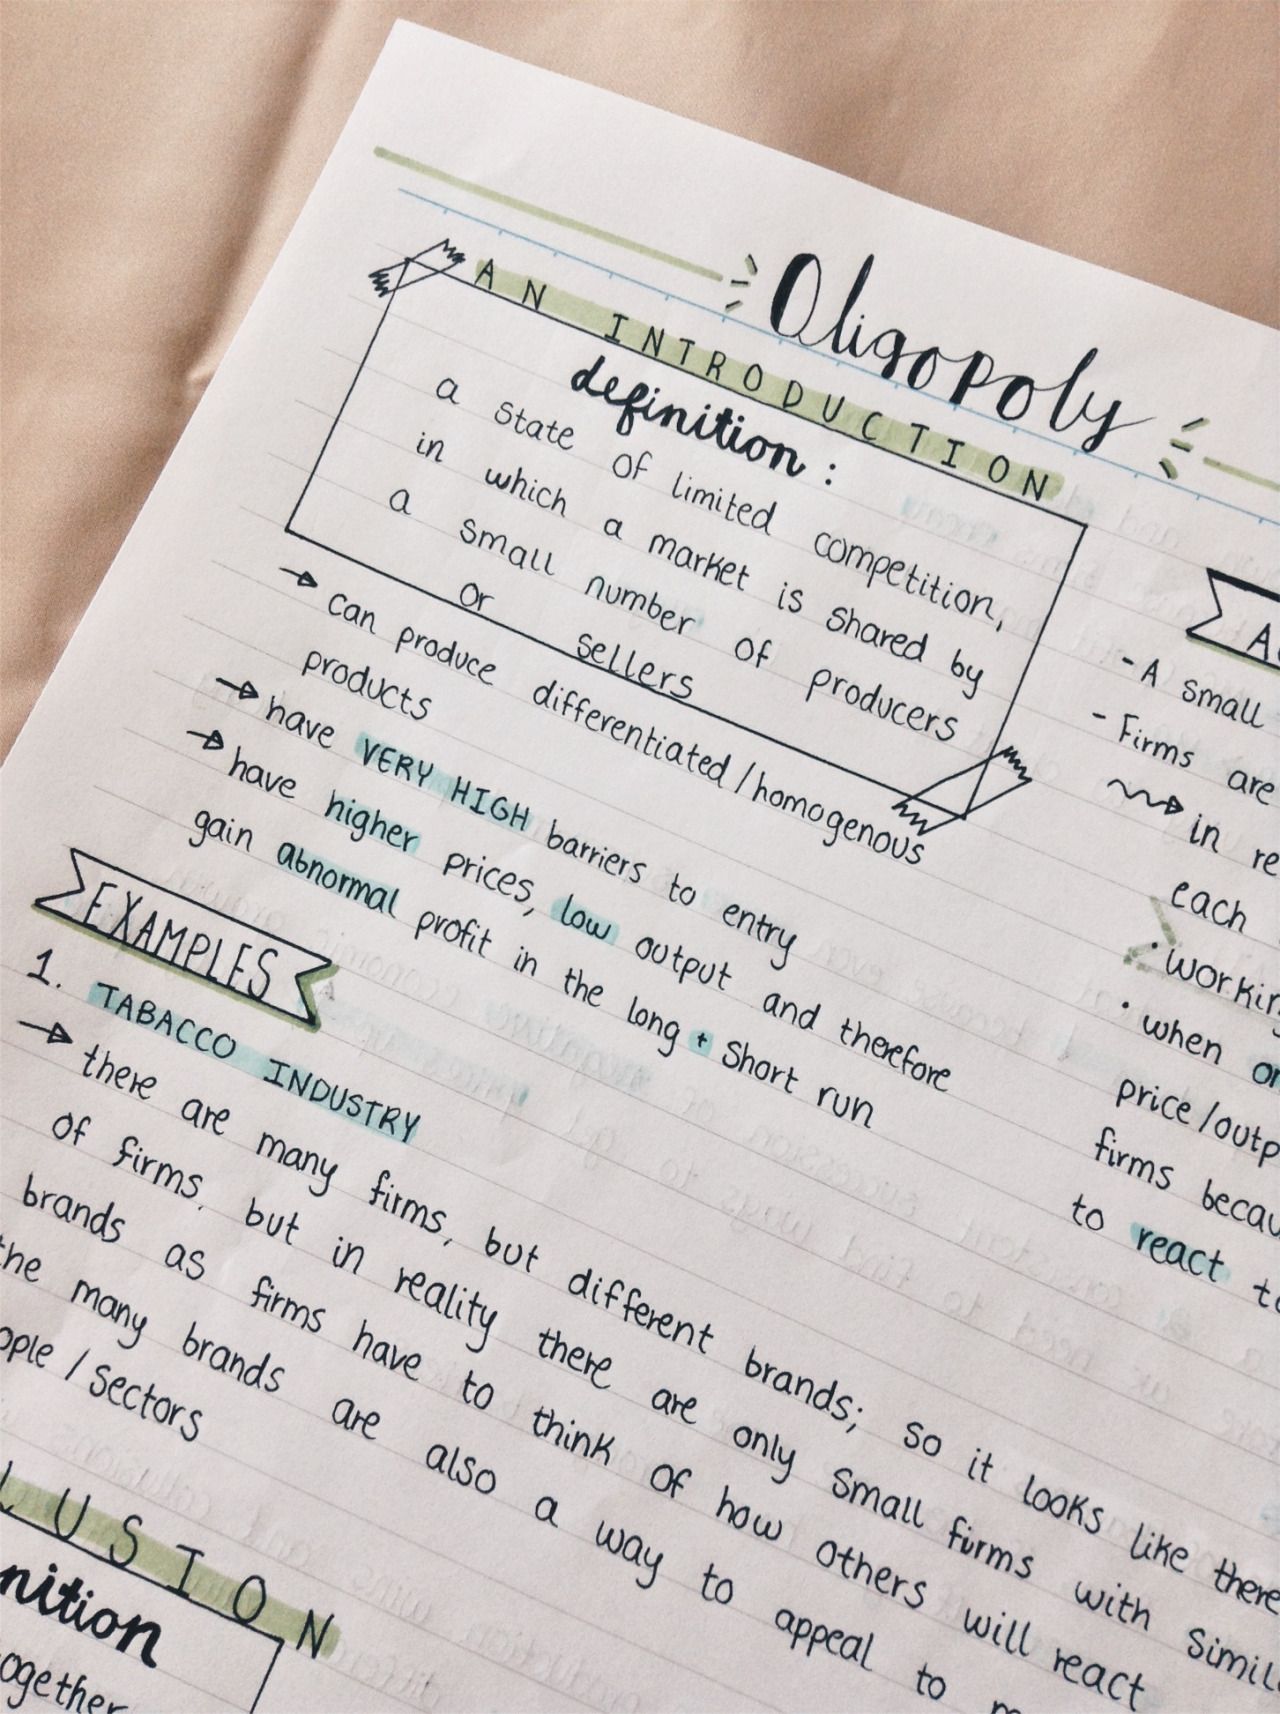 Oligopoly
AN INTRODUCTION
definition:
a state of limited competition,
in which a market is shared by
a small number of producers
or sellers
→ can produce differentiated/homogenous
products
→ have VERY HIGH barriers to entry
→ have higher prices, low output and therefore
gain abnormal profit in the long + short run
EXAMPLES
1. TABACCO INDUSTRY
→ there are many firms, but different brands; so it looks like there
of firms, but in reality there are only small firms with
brands as firms have to think of how others will react
the many brands are also a way to appeal to
/sectors
nition
- A small
- Firms are
in
each
• when
price/
firms
to react